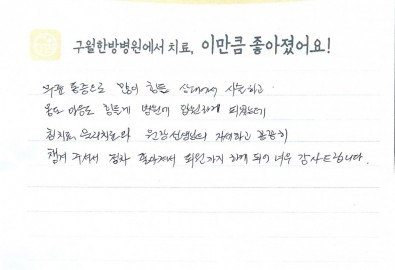 구월한방병원에서 치료, 이만큼 좋아졌어요!
통증으로 많이 힘든 상태에서
몸도 마음도 힘들게 병원에 입원하게 되었는데
침치료, 물리치료와 원장선생님의 자세하고 꼼꼼히
챙겨 주셔서 점차 좋아져서 퇴원까지 하게 되어 너무 감사드립니다.